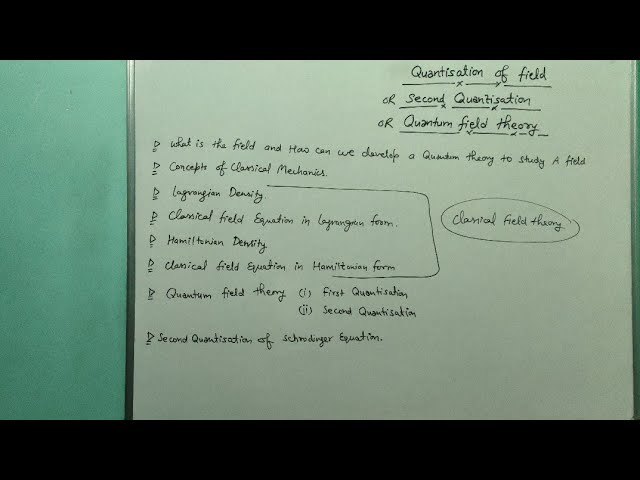 Quantisation of field
OR Second Quantisation
OR Quantum field theory
What is the field and How can we develop a Quantum theory to study A field
Concepts of Classical Mechanics.
Lagrangian Density.
Classical field Equation in Lagrangian form.
Classical Field theory
Hamiltonian Density
Classical field Equation in Hamiltonian form
Quantum field theory (i) First Quantisation
(ii) Second Quantisation
Second Quantisation of Schrodinger Equation.